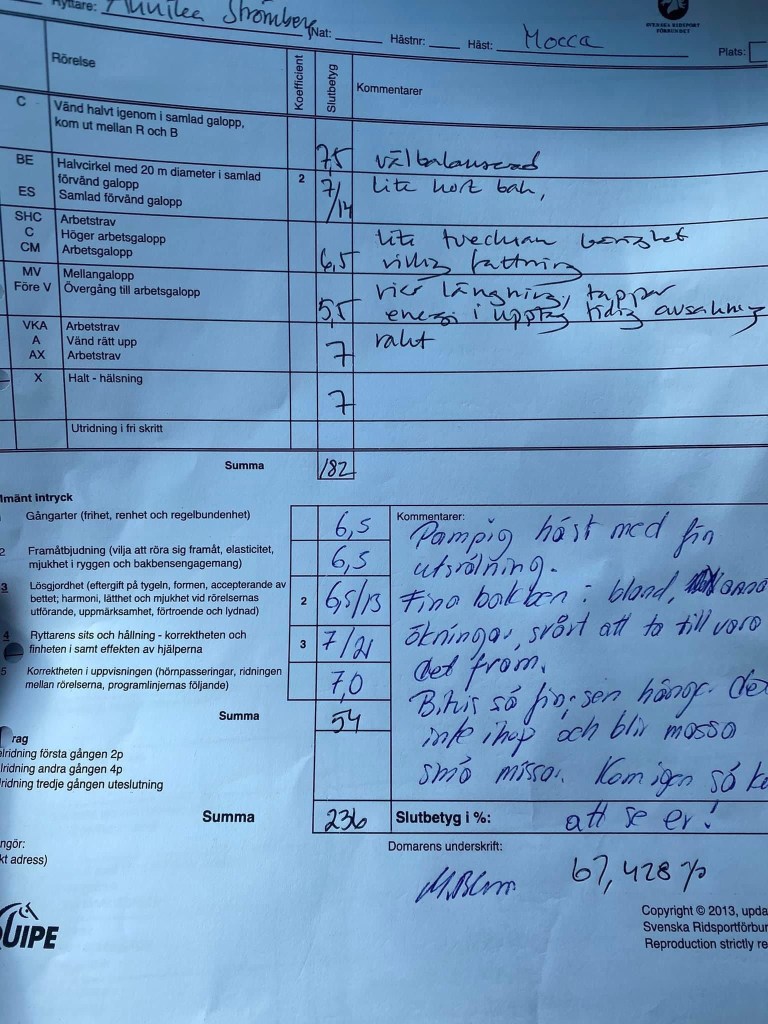 Ryttare: Annika Strömberg Nat: Hästnr: Häst: Mocca Plats:
SVENSKA RIDSPORT
FÖRBUNDET
Rörelse Koefficient Slutbetyg Kommentarer
C Vänd halvt igenom i samlad galopp,
kom ut mellan R och B 7,5 välbalanserad
BE Halvcirkel med 20 m diameter i samlad
förvänd galopp 2 7/14 lite kort bak,
ES Samlad förvänd galopp
SHC Arbetstrav lite tveksam
C Höger arbetsgalopp
CM Arbetsgalopp 6,5 viktig fattning
MV Mellangalopp längning, tappar
Före V Övergång till arbetsgalopp 5,5 energi i upptag tidig avsaktning
VKA Arbetstrav rakt
A Vänd rätt upp 7
AX Arbetstrav
X Halt - hälsning 7
Utridning i fri skritt
Summa 182
lmänt intryck
Gångarter (frihet, renhet och regelbundenhet) 6,5
2 Framåtbjudning (vilja att röra sig framåt, elasticitet,
mjukhet i ryggen och bakbensengagemang) 6,5
3 Lösgjordhet (eftergift på tygeln, formen, accepterande av
bettet; harmoni, lätthet och mjukhet vid rörelsernas
utförande, uppmärksamhet, förtroende och lydnad) 2 6,5/13
4 Ryttarens sits och hållning - korrektheten och
finheten i samt effekten av hjälperna 3 7/21
5 Korrektheten i uppvisningen (hörnpasseringar, ridningen
mellan rörelserna, programlinjernas följande) 7,0
Summa 54
Kommentarer:
Pampig häst med fin
utstrålning.
Fina bakben i bland,
ökningar, svårt att ta till vara
det fram.
Bitvis så fin, sen hänger de
inte ihop och blir massa
små missar. Kom igen så k
att se er!
rag
lridning första gången 2p
lridning andra gången 4p
lridning tredje gången uteslutning
Summa 236 Slutbetyg i %:
67,428 %
ngör:
kt adress)
Domarens underskrift:
QUIPE
Copyright © 2013, upda
Svenska Ridsportförbun
Reproduction strictly re